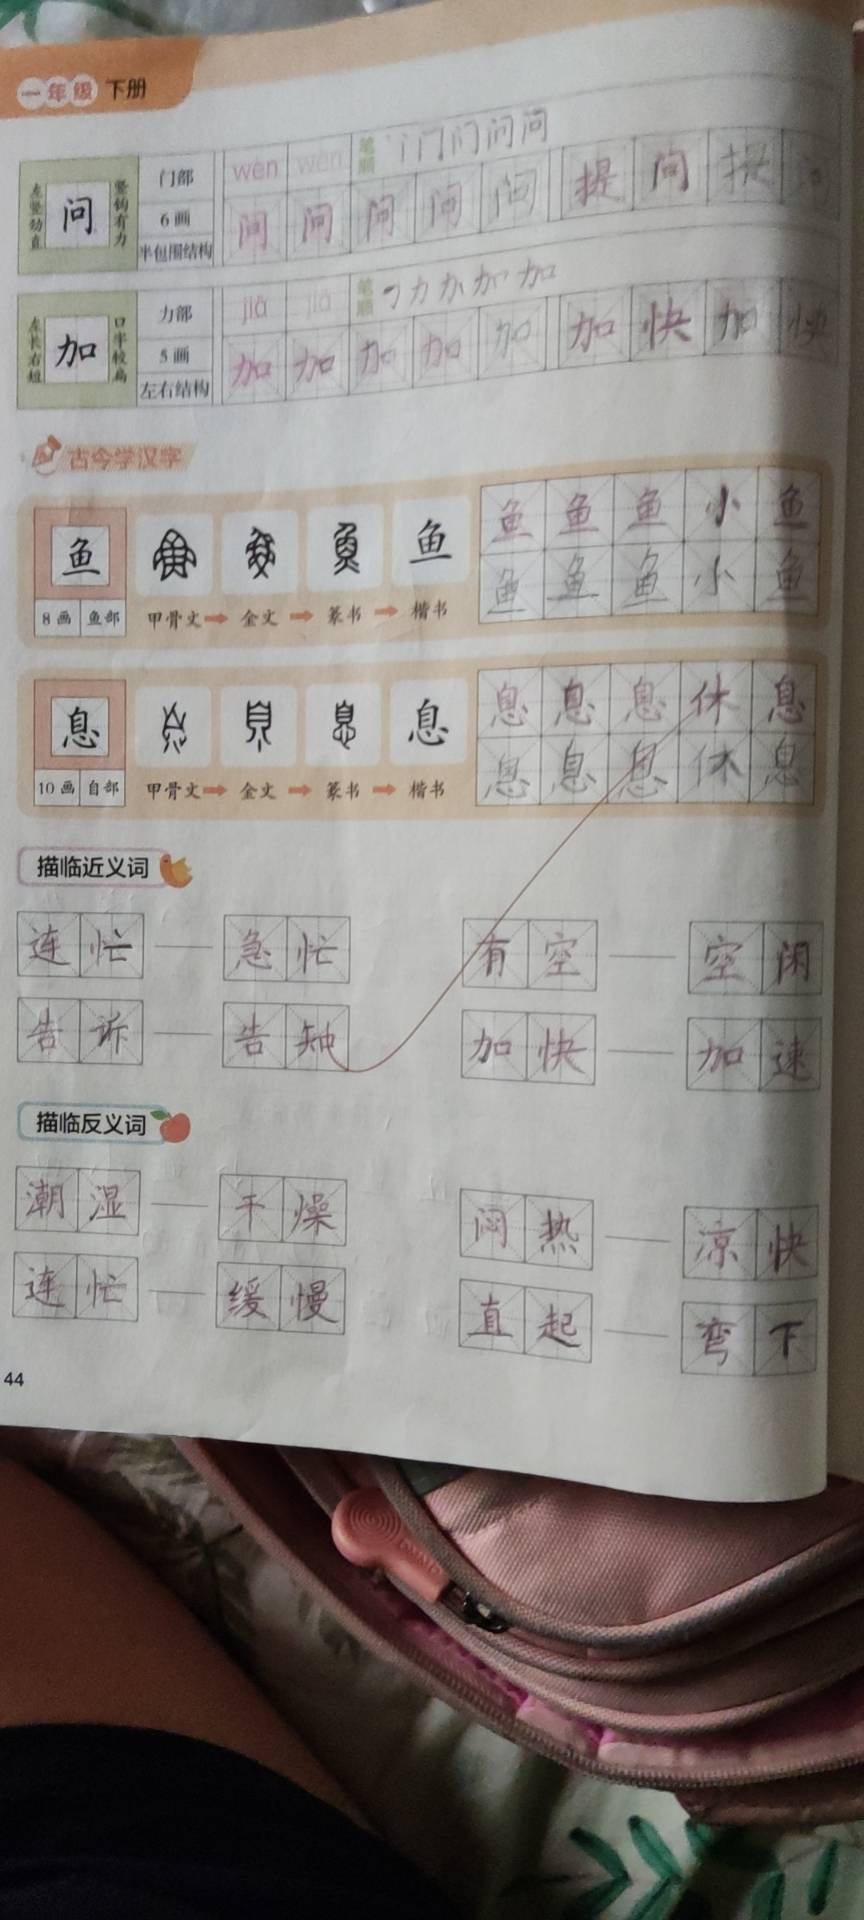 一年级 下册
左竖劲直 问 竖钩有力 门部 6画 半包围结构 wèn wèn 笔顺
问 问 问 问 问 提 问 提
左长右短 加 口字较扁 力部 5画 左右结构 jiā jiā 笔顺
加 加 加 加 加 加 快 加 快
古今学汉字
鱼 8画 鱼部
甲骨文 金文 篆书 楷书
鱼
鱼 鱼 鱼 小 鱼
鱼 鱼 鱼 小 鱼
息 10画 自部
甲骨文 金文 篆书 楷书
息
息 息 息 休 息
息 息 息 休 息
描临近义词
连忙 — 急忙 有空 — 空闲
告诉 — 告知 加快 — 加速
描临反义词
潮湿 — 干燥 闷热 — 凉快
连忙 — 缓慢 直起 — 弯下
44